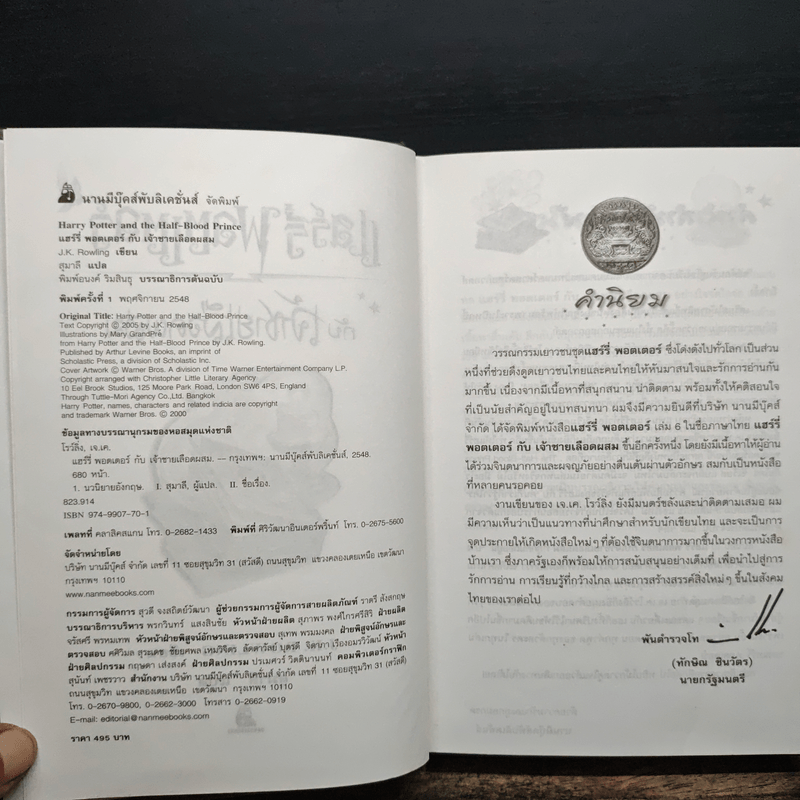 นานมีบุ๊คส์พับลิเคชั่นส์ จัดพิมพ์
Harry Potter and the Half-Blood Prince
แฮร์รี่ พอตเตอร์ กับ เจ้าชายเลือดผสม
J.K. Rowling เขียน
สุมาลี แปล
พิมพ์อนงค์ ริมสินธุ บรรณาธิการต้นฉบับ
พิมพ์ครั้งที่ 1 พฤศจิกายน 2548
Original Title: Harry Potter and the Half-Blood Prince
Text Copyright © 2005 by J.K. Rowling
Illustrations by Mary GrandPré
from Harry Potter and the Half-Blood Prince by J.K. Rowling.
Published by Arthur Levine Books, an imprint of
Scholastic Press, a division of Scholastic Inc.
Cover Artwork © Warner Bros. A division of Time Warner Entertainment Company L.P.
Copyright arranged with Christopher Little Literary Agency
10 Eel Brook Studios, 125 Moore Park Road, London SW6 4PS, England
Through Tuttle-Mori Agency Co.,Ltd. Bangkok
Harry Potter, names, characters and related indicia are copyright
and trademark Warner Bros. © 2000
ข้อมูลทางบรรณานุกรมของหอสมุดแห่งชาติ
โรว์ลิ่ง, เจ.เค.
แฮร์รี่ พอตเตอร์ กับ เจ้าชายเลือดผสม. — กรุงเทพฯ: นานมีบุ๊คส์พับลิเคชั่นส์, 2548.
680 หน้า.
1. นวนิยายอังกฤษ. I. สุมาลี, ผู้แปล. II. ชื่อเรื่อง.
823.914
ISBN 974-9907-70-1
เพลทที่ คลาสิคสแกน โทร. 0-2682-1433 พิมพ์ที่ ศิริวัฒนาอินเตอร์พริ้นท์ โทร. 0-2675-5600
จัดจำหน่ายโดย
บริษัท นานมีบุ๊คส์ จำกัด เลขที่ 11 ซอยสุขุมวิท 31 (สวัสดี) ถนนสุขุมวิท แขวงคลองเตยเหนือ เขตวัฒนา
กรุงเทพฯ 10110
www.nanmeebooks.com
กรรมการผู้จัดการ สุวดี จงสถิตย์วัฒนา ผู้ช่วยกรรมการผู้จัดการสายผลิตภัณฑ์ ราตรี สังสกฤษ
บรรณาธิการบริหาร พรกวินทร์ แสงสินชัย หัวหน้าฝ่ายผลิต สุภาพร พงศ์ไกรศรีสิริ ฝ่ายผลิต
จรัสศรี พรหมเทพ หัวหน้าฝ่ายพิสูจน์อักษรและตรวจสอบ สุเทพ พรมมงคล ฝ่ายพิสูจน์อักษรและ
ตรวจสอบ ศศิวิมล สุระเดช ชัยยศพล เหมวิจิตร ลัดดาวัลย์ บุตรดี จิตานา เรืองอมรวิวัฒน์ หัวหน้า
ฝ่ายศิลปกรรม กฤษดา เส่งสงค์ ฝ่ายศิลปกรรม ปรเมศวร์ วิตตินานนท์ คอมพิวเตอร์กราฟิก
สุนันท์ เพชรราว สำนักงาน บริษัท นานมีบุ๊คส์พับลิเคชั่นส์ จำกัด เลขที่ 11 ซอยสุขุมวิท 31 (สวัสดี)
ถนนสุขุมวิท แขวงคลองเตยเหนือ เขตวัฒนา กรุงเทพฯ 10110
โทร. 0-2670-9800, 0-2662-3000 โทรสาร 0-2662-0919
E-mail: editorial@nanmeebooks.com
ราคา 495 บาท
คำนิยม
วรรณกรรมเยาวชนชุดแฮร์รี่ พอตเตอร์ ซึ่งโด่งดังไปทั่วโลก เป็นส่วน
หนึ่งที่ช่วยดึงดูดเยาวชนไทยและคนไทยให้หันมาสนใจและรักการอ่านกัน
มากขึ้น เนื่องจากมีเนื้อหาที่สนุกสนาน น่าติดตาม พร้อมทั้งให้คติสอนใจ
ที่เป็นนัยสำคัญอยู่ในบทสนทนา ผมจึงมีความยินดีที่บริษัท นานมีบุ๊คส์
จำกัด ได้จัดพิมพ์หนังสือแฮร์รี่ พอตเตอร์ เล่ม 6 ในชื่อภาษาไทย แฮร์รี่
พอตเตอร์ กับ เจ้าชายเลือดผสม ขึ้นอีกครั้งหนึ่ง โดยยังมีเนื้อหาให้ผู้อ่าน
ได้ร่วมจินตนาการและผจญภัยอย่างตื่นเต้นผ่านตัวอักษร สมกับเป็นหนังสือ
ที่หลายคนรอคอย
งานเขียนของ เจ.เค. โรว์ลิ่ง ยังมีมนตร์ขลังและน่าติดตามเสมอ ผม
มีความเห็นว่าเป็นแนวทางที่น่าศึกษาสำหรับนักเขียนไทย และจะเป็นการ
จุดประกายให้เกิดหนังสือใหม่ๆ ที่ต้องใช้จินตนาการมากขึ้นในวงการหนังสือ
บ้านเรา ซึ่งภาครัฐเองก็พร้อมให้การสนับสนุนอย่างเต็มที่ เพื่อนำไปสู่การ
รักการอ่าน การเรียนรู้ที่กว้างไกล และการสร้างสรรค์สิ่งใหม่ๆ ขึ้นในสังคม
ไทยของเราต่อไป
พันตำรวจโท
(ทักษิณ ชินวัตร)
นายกรัฐมนตรี